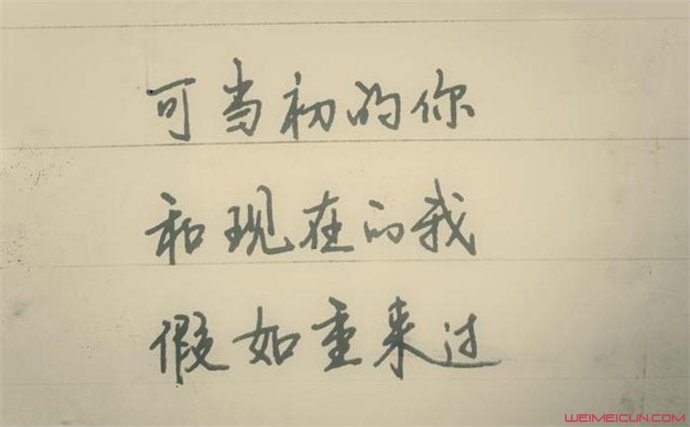 可当初的你
和现在的我
假如重来过
WEIMEICUN.COM